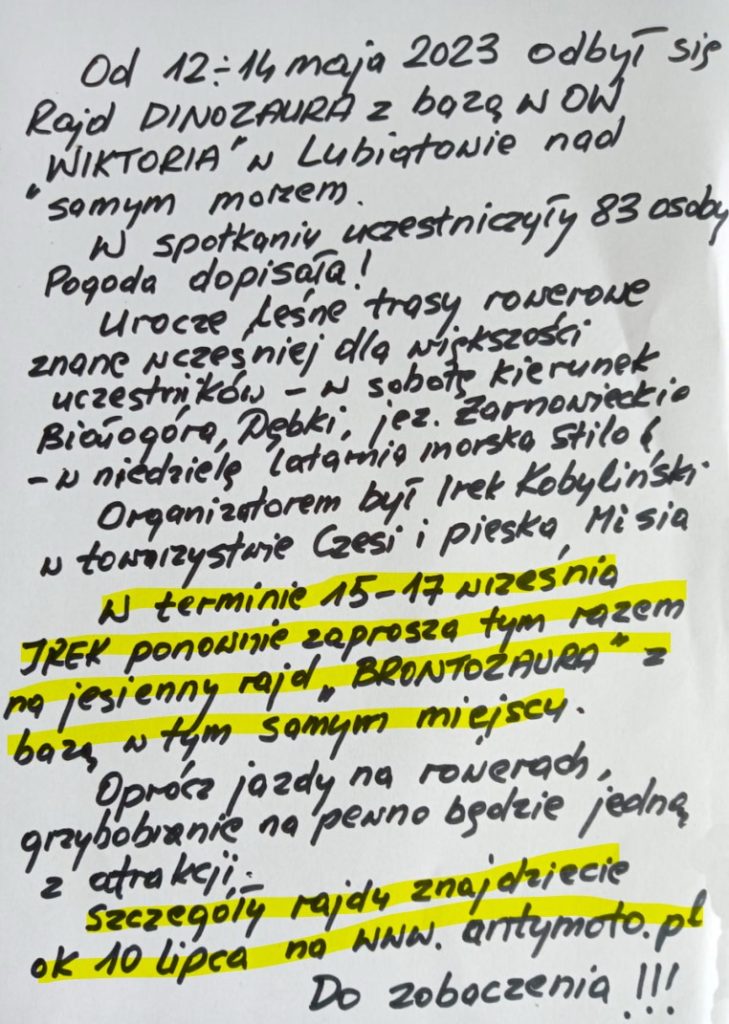 Od 12÷14 maja 2023 odbył się
Rajd DINOZAURA z bazą w OW
"WIKTORIA" w Lubiatowie nad
samym morzem.
W spotkaniu uczestniczyły 83 osoby
Pogoda dopisała!
Urocze leśne trasy rowerowe
znane wcześniej dla większości
uczestników – w sobotę kierunek
Białogóra, Dębki, jez. Żarnowieckie
– w niedzielę latarnia morska Stilo
Organizatorem był Irek Kobyliński
w towarzystwie Czesi i pieska Misia
W terminie 15–17 września
IREK ponownie zaprosza tym razem
na jesienny rajd „BRONTOZAURA" z
bazą w tym samym miejscy.
Oprócz jazdy na rowerach,
grzybobranie na pewno będzie jedną
z atrakcji.
Szczegóły rajdy znajdziecie
ok 10 lipca na www.antymoto.pl
Do zobaczenia !!!